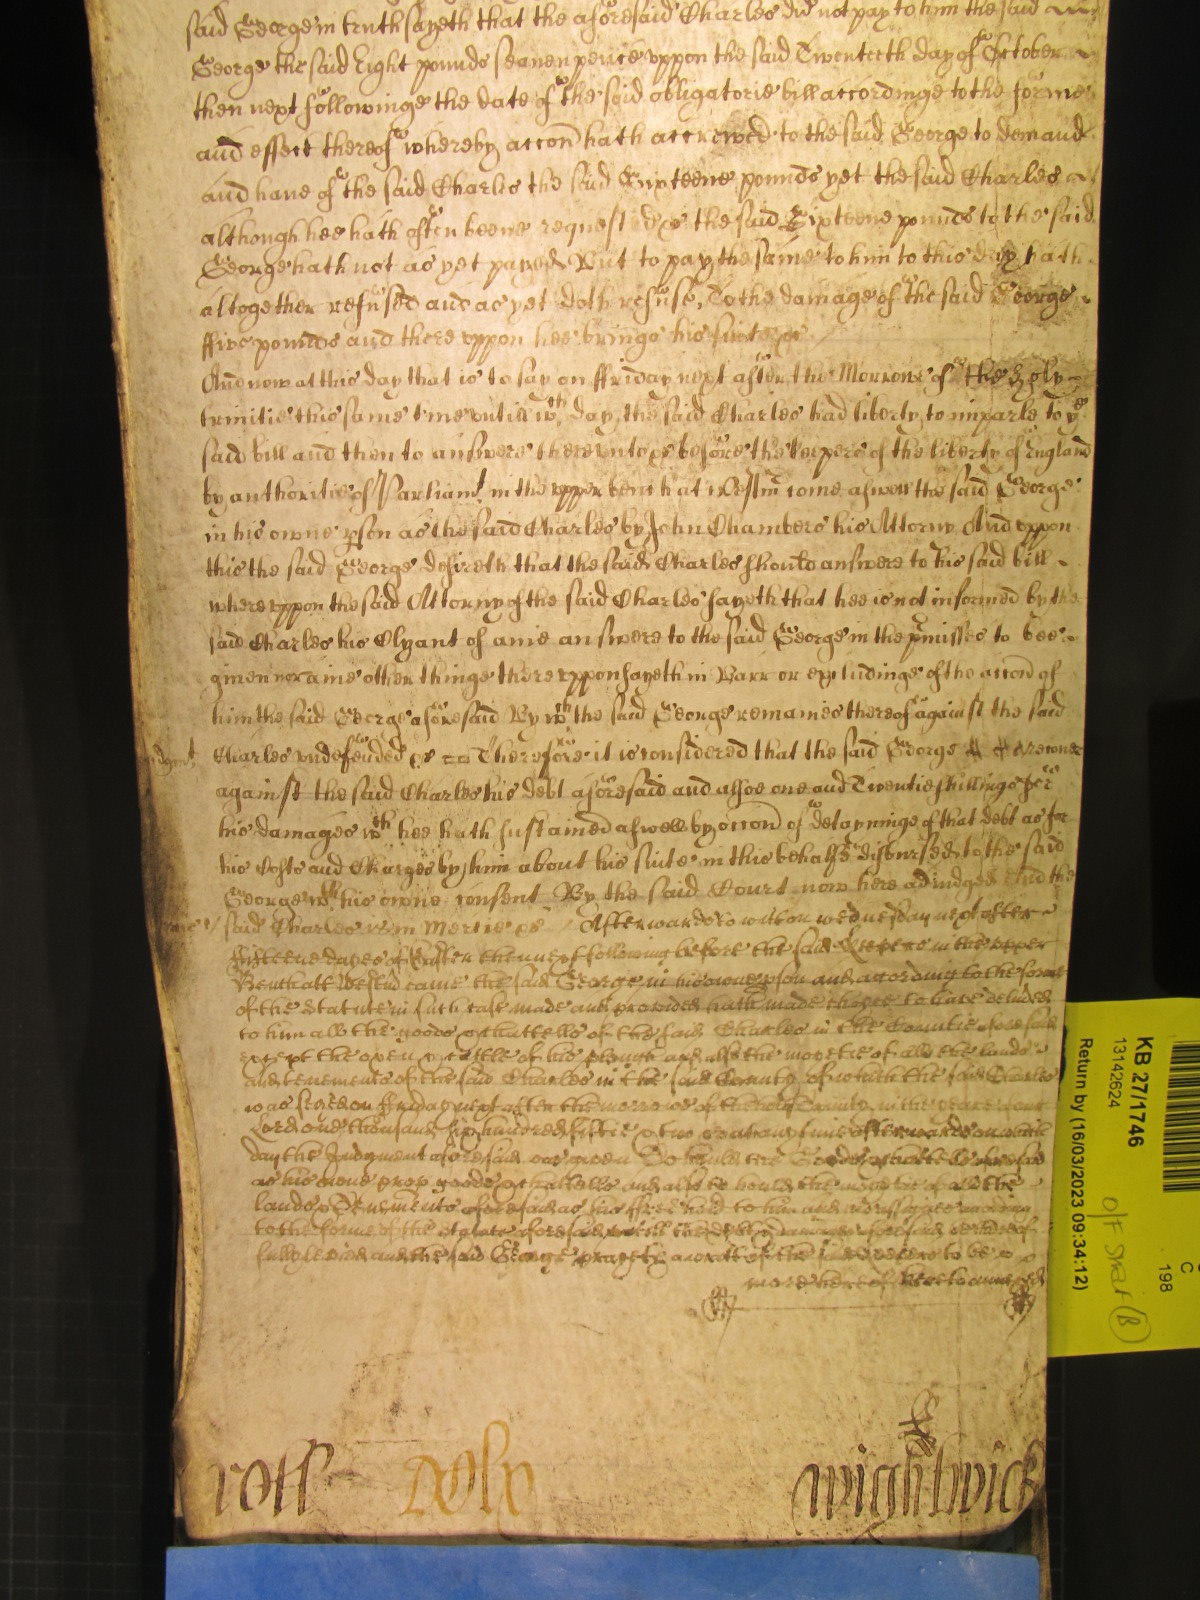 said George in truth sayeth that the aforesaid Charles did not pay to him the said
George the said Eight pounds seaven pence uppon the said Twentieth day of October
then next followinge the date of the said obligatorie bill accordinge to the forme
and effect thereof whereby accon hath accrewed to the said George to demand
and have of the said Charles the said Sixteene pounds yet the said Charles
although hee hath often beene requested &c the said Sixteene pounds to the said
George hath not as yet payed But to pay the same to him to this day hath
altogether refused and as yet doth refuse, To the damage of the said George
ffive pounds and there uppon hee brings his suite &c
And now at this day that is to say on ffriday next after the Morrowe of the Holy
trinitie this same terme untill wch day the said Charles had liberty to imparle to ye
said bill and then to answere thereunto &c before the keepers of the liberty of England
by authoritie of Parliamt in the upper bench at Westm come aswell the said George
in his owne pson as the said Charles by John Chambers his Attorny And uppon
this the said George desireth that the said Charles should answere to his said bill
where uppon the said Attorny of the said Charles sayeth that hee is not informed by the
said Charles his Clyant of anie answere to the said George in the pmisses to bee
given nor anie other thinge there uppon sayeth in Barr or excludinge of the accon of
him the said George aforesaid By wch the said George remaines thereof against the said
Judgmt
Charles undefended &c Therefore it is considered that the said George recover
against the said Charles his debt aforesaid and alsoe one and Twentie shillings for
his damages wch hee hath sustained aswell by occon of delayninge of that debt as for
his Costs and Charges by him about his suite in this behalfe disbursed to the said
George wth his owne consent By the said Court now here adiudged And the
said Charles is in Mercie &c Afterwards to wit on wednesday next after
fifteene dayes of Easter then next following before the said Keepers in the upper
Bench att Westm came the said George in his owne pson and according to the forme
of the Statute in such case made and provided hath made choice to have delivered
to him all the goods & chattells of the said Charles in the Countie aforesaid
except the oxen & cattle of his plough and also the moyetie of all the lands
and tenements of the said Charles in the said County of which the said Charles
was seized on ffriday next after the morrowe of the holy Trinity in the yeare of our
Lord one thousand six hundred fiftie & two or att any time afterwards on which
day the Judgment aforesaid was given To hould the Goods & chattells aforesaid
as his owne prop goods & chattells and also to hould the moyetie of all the
lands & Tenements aforesaid as his free hold to him and his assignes according
to the forme of the statute aforesaid untill the debt & damages aforesaid thereof
fully levied and the said George prayeth a writt of the said Keepers to bee
more hereof hee to
roll
Wightwick
KB 27/1746
13142624
Return by (16/03/2023 09:34:12)
O/F Staff (B)
C
198